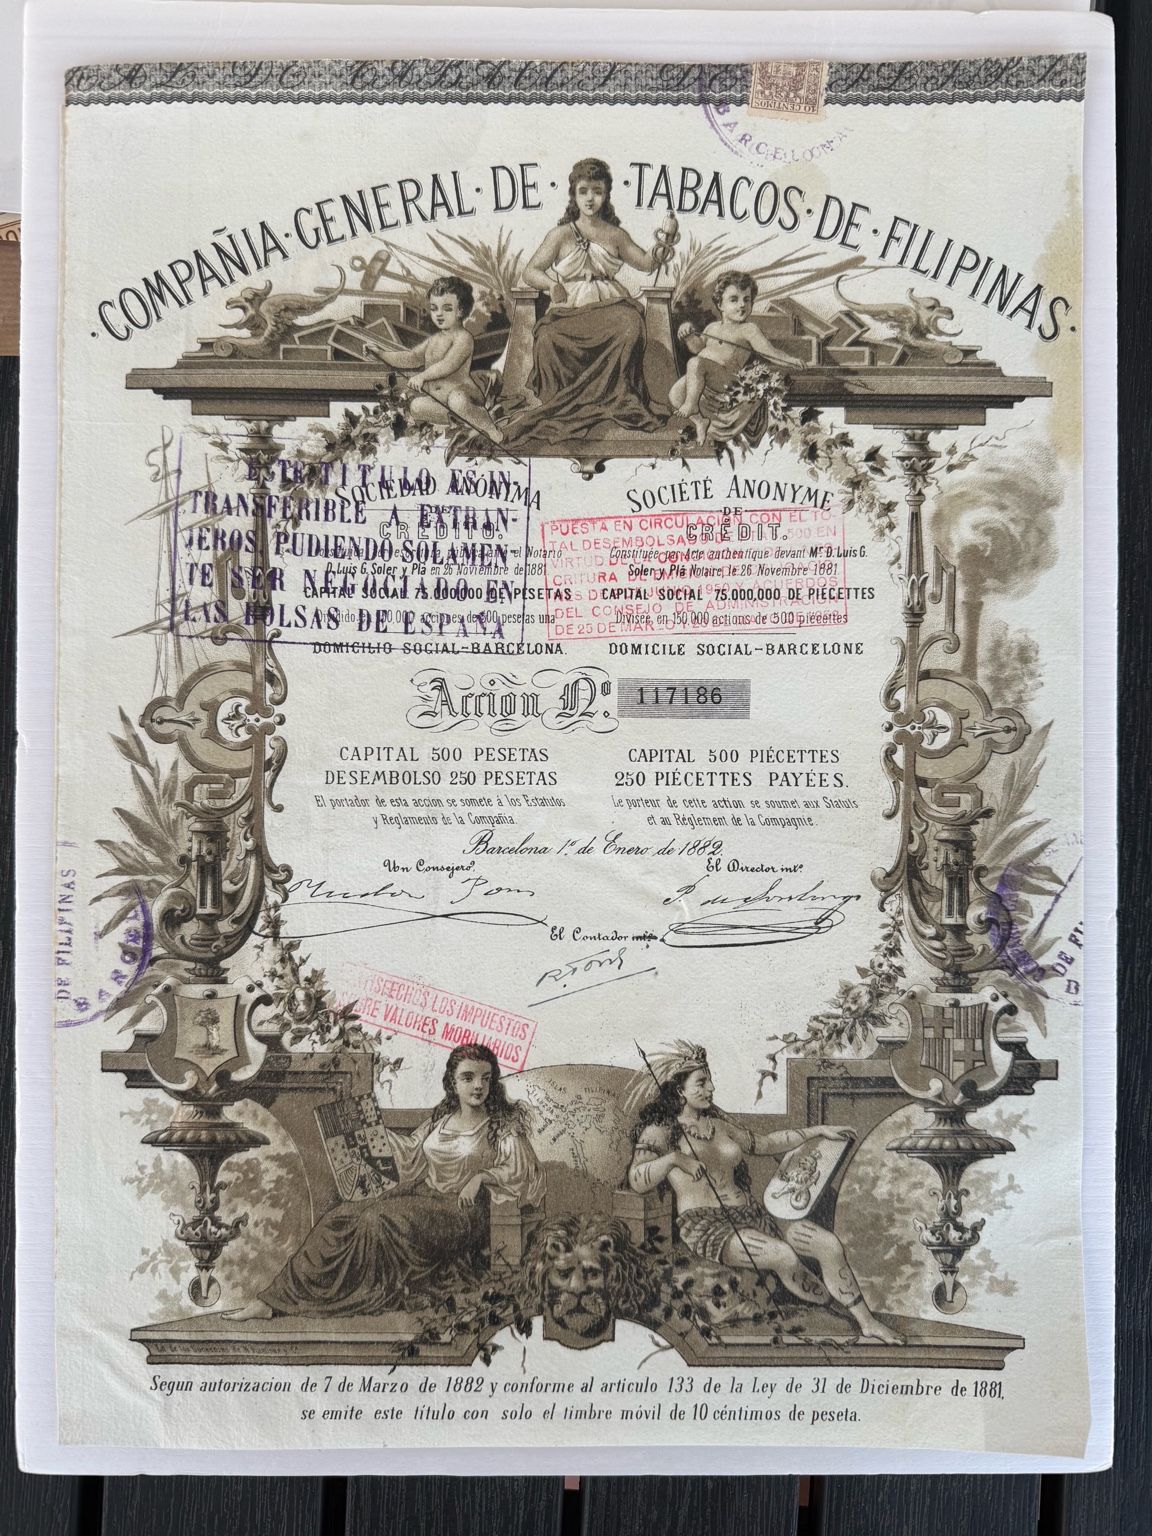 10 CENTIMOS
BARCELONA
COMPAÑIA·GENERAL·DE·TABACOS·DE·FILIPINAS·
ESTE TITULO ES IN-
TRANSFERIBLE A EXTRAN-
JEROS PUDIENDO SOLAMEN-
TE SER NEGOCIADO EN
LAS BOLSAS DE ESPAÑA
SOCIEDAD ANÓNIMA
DE
CRÉDITO.
Constituida por escritura pública ante el Notario
D. Luis G. Soler y Pla en 26 Noviembre de 1881
CAPITAL SOCIAL 75.000.000 DE PESETAS
Dividido en 150,000 acciones de 500 pesetas una
DOMICILIO SOCIAL-BARCELONA.
SOCIÉTÉ ANONYME
DE
CRÉDIT.
Constituée par Acte authentique devant Mr. D. Luis G.
Soler y Plá Notaire le 26 Novembre 1881
CAPITAL SOCIAL 75,000,000 DE PIÉCETTES
Divisée, en 150,000 actions de 500 piecettes
DOMICILE SOCIAL-BARCELONE
PUESTA EN CIRCULACIÓN CON EL TO-
TAL DESEMBOLSADO DE PTAS 500 EN
VIRTUD DE
CRITURA DE
JUNIO 1950 Y ACUERDOS
DEL CONSEJO DE ADMINISTRACION
DE 25 DE MARZO
Acción N.º 117186
CAPITAL 500 PESETAS
DESEMBOLSO 250 PESETAS
El portador de esta accion se somete á los Estatutos
y Reglamento de la Compañia.
CAPITAL 500 PIÉCETTES
250 PIÉCETTES PAYÉES.
Le porteur de cette action se soumet aux Statuts
et au Réglement de la Compagnie.
Barcelona 1.º de Enero de 1882.
Un Consejero,
El Director intº.
El Contador intº.
DE FILIPINAS
SATISFECHOS LOS IMPUESTOS
SOBRE VALORES MOBILIARIOS
ISLAS FILIPINAS
Segun autorizacion de 7 de Marzo de 1882 y conforme al articulo 133 de la Ley de 31 de Diciembre de 1881,
se emite este título con solo el timbre móvil de 10 céntimos de peseta.